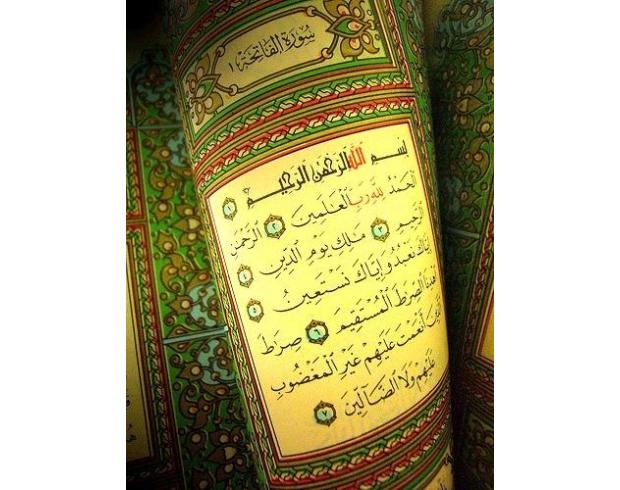 سُورَةُ الفَاتِحَةِ ١
بِسْمِ اللَّهِ الرَّحْمَٰنِ الرَّحِيمِ ١
الْحَمْدُ لِلَّهِ رَبِّ الْعَالَمِينَ ٢ الرَّحْمَٰنِ
الرَّحِيمِ ٣ مَالِكِ يَوْمِ الدِّينِ ٤
إِيَّاكَ نَعْبُدُ وَإِيَّاكَ نَسْتَعِينُ ٥
اهْدِنَا الصِّرَاطَ الْمُسْتَقِيمَ ٦ صِرَاطَ
الَّذِينَ أَنْعَمْتَ عَلَيْهِمْ غَيْرِ الْمَغْضُوبِ
عَلَيْهِمْ وَلَا الضَّالِّينَ ٧